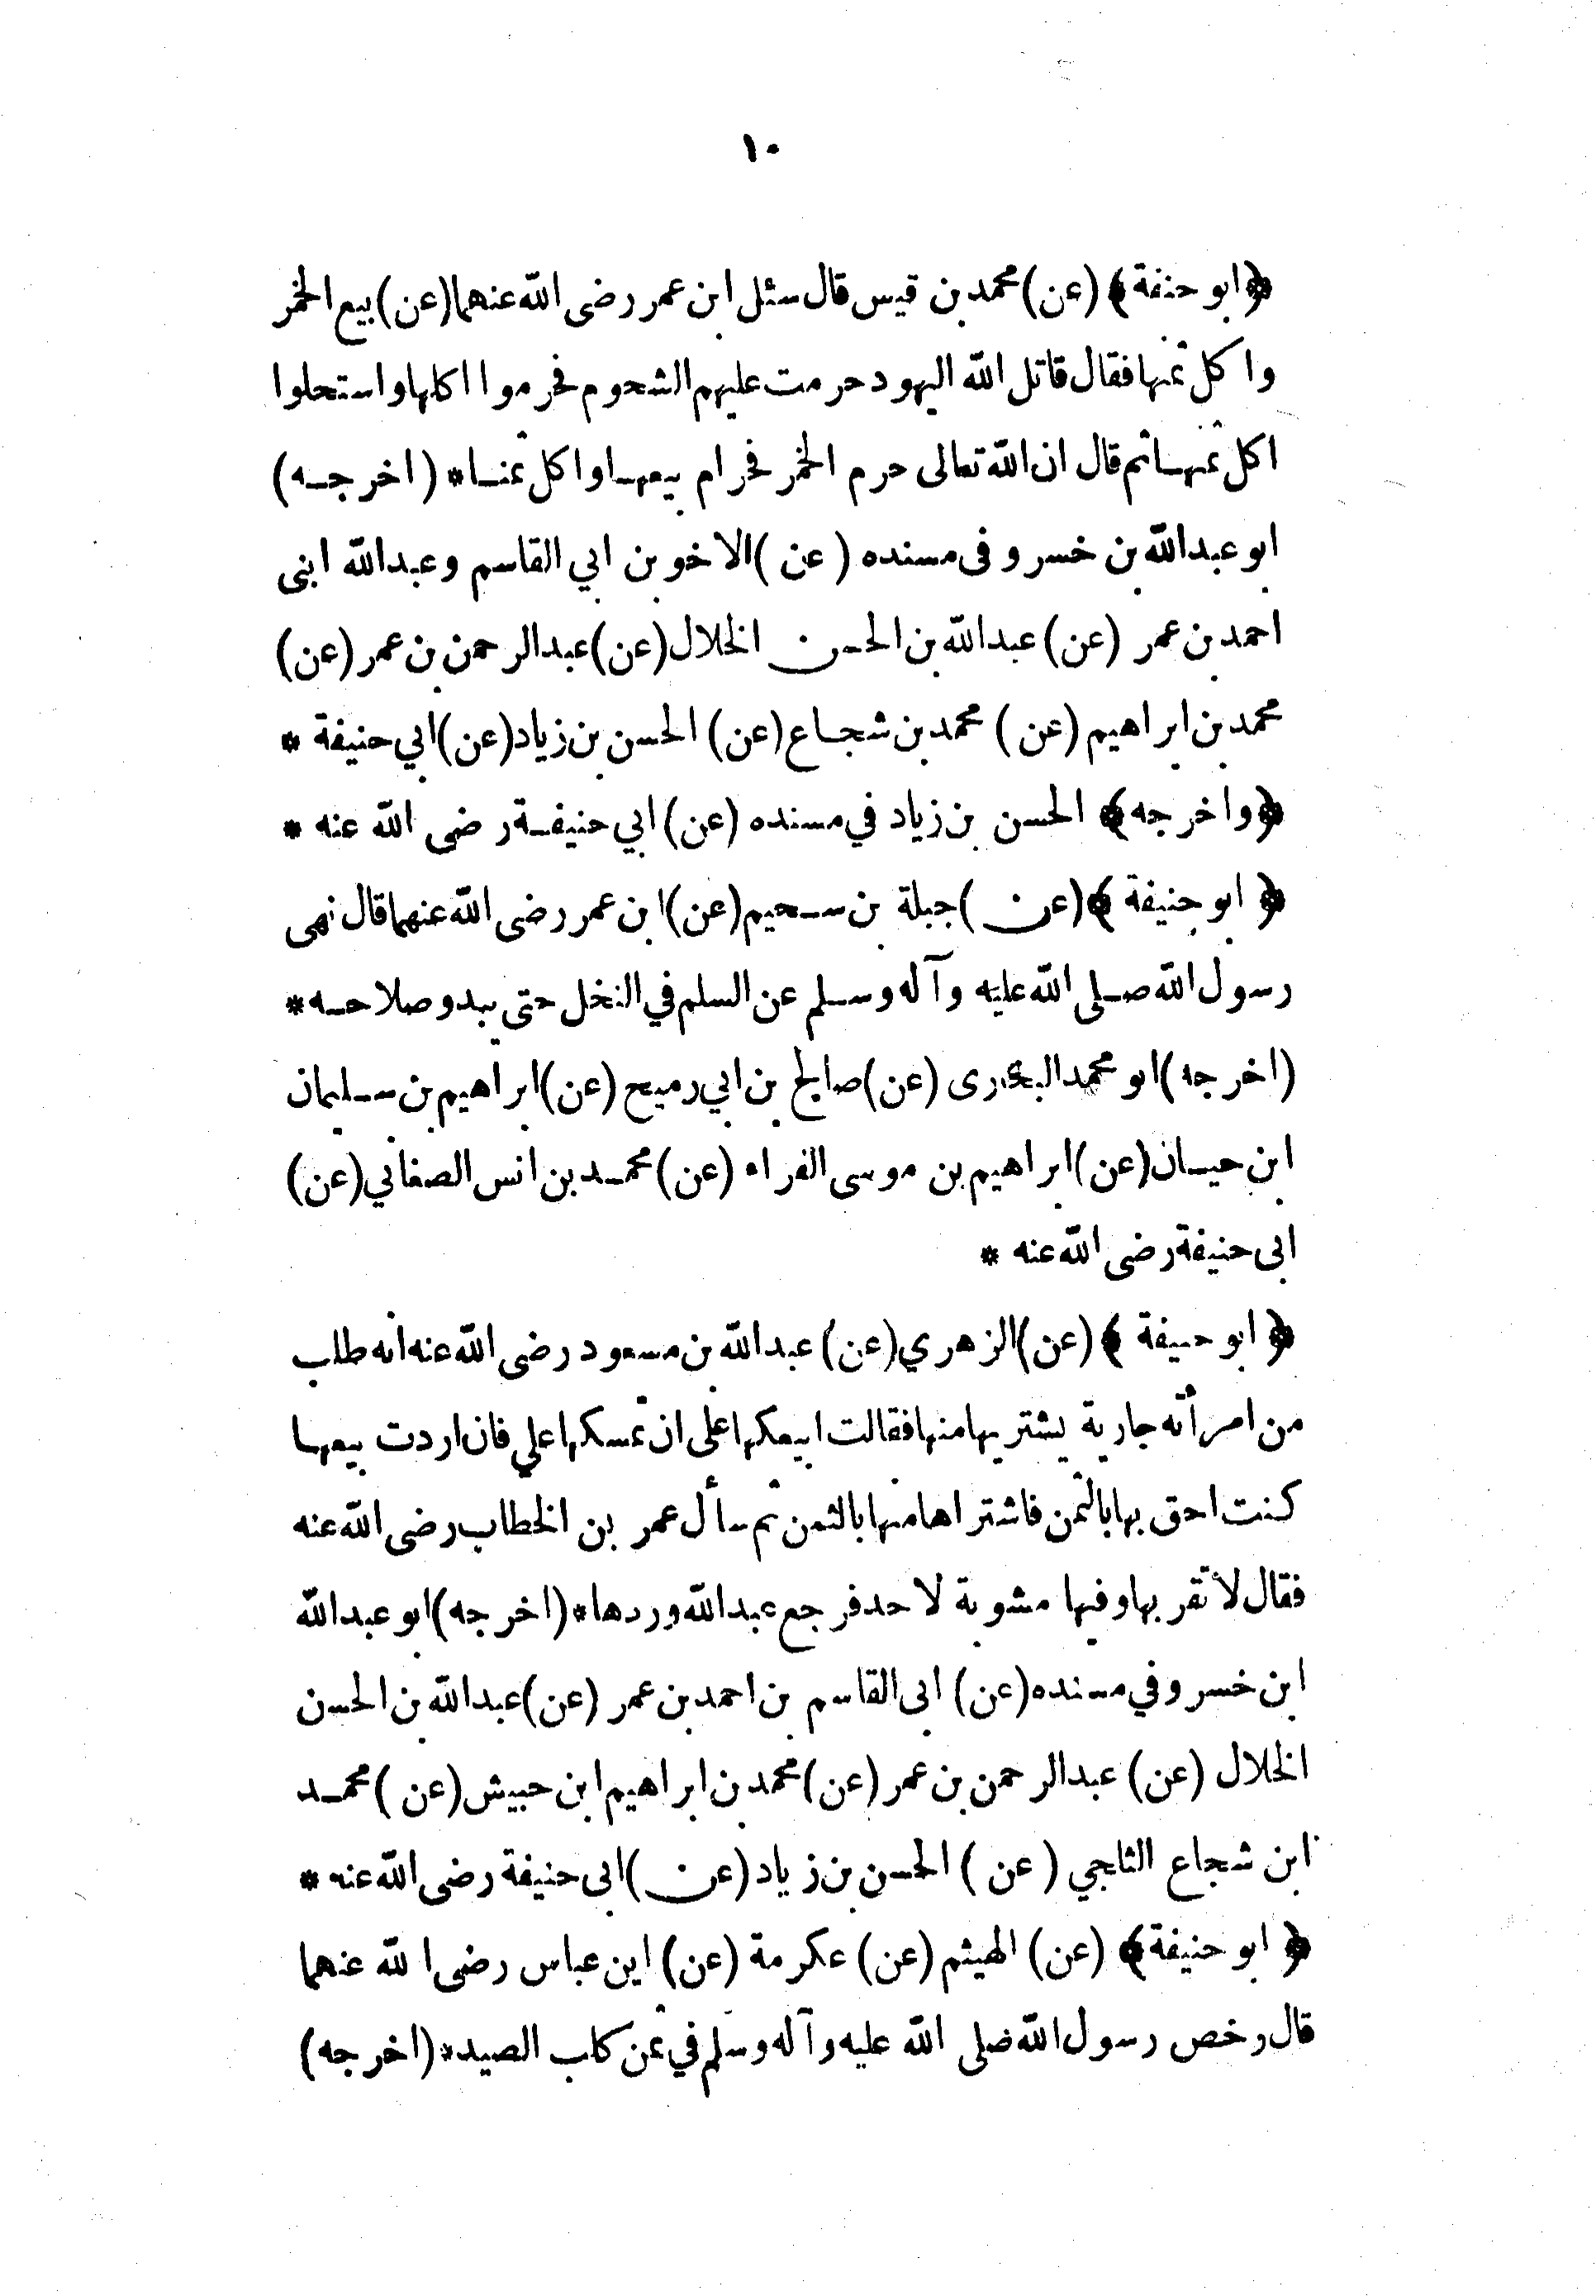 ١٠
﴿ ابو حنفة ﴾ (عن) محمد بن قيس قال سئل ابن عمر رضى الله عنهما (عن) بيع الخمر
واكل ثمنها فقال قاتل الله اليهود حرمت عليهم الشحوم فحرموا اكلها واستحلوا
اكل ثمنها ثم قال ان الله تعالى حرم الخمر فحرام بيعها واكل ثمنها * (اخرجه)
ابو عبدالله بن خسرو فى مسنده (عن) الاخوين ابي القاسم وعبدالله ابنى
احمد بن عمر (عن) عبدالله بن الحسن الخلال (عن) عبدالرحمن بن عمر (عن)
محمد بن ابراهيم (عن) محمد بن شجاع (عن) الحسن بن زياد (عن) ابي حنيفة *
﴿ واخرجه ﴾ الحسن بن زياد في مسنده (عن) ابي حنيفة رضى الله عنه *
﴿ ابو حنيفة ﴾ (عن) جبلة بن سحيم (عن) ابن عمر رضى الله عنهما قال نهى
رسول الله صلى الله عليه وآله وسلم عن السلم في النخل حتى يبدو صلاحه *
(اخرجه) ابو محمد البخارى (عن) صالح بن ابي رميح (عن) ابراهيم بن سليمان
ابن حيان (عن) ابراهيم بن موسى الفراء (عن) محمد بن انس الصغاني (عن)
ابى حنيفة رضى الله عنه *
﴿ ابو حنيفة ﴾ (عن) الزهري (عن) عبدالله بن مسعود رضى الله عنه انه طلب
من امرأته جارية يشتريها منها فقالت ابيعكها على ان تمسكها علي فان اردت بيعها
كنت احق بها بالثمن فاشتراها منها بالثمن ثم سأل عمر بن الخطاب رضى الله عنه
فقال لا تقربها وفيها مشوبة لاحد فرجع عبدالله وردها * (اخرجه) ابو عبدالله
ابن خسرو في مسنده (عن) ابى القاسم بن احمد بن عمر (عن) عبدالله بن الحسن
الخلال (عن) عبدالرحمن بن عمر (عن) محمد بن ابراهيم ابن حبيش (عن) محمد
ابن شجاع الثلجي (عن) الحسن بن زياد (عن) ابى حنيفة رضى الله عنه *
﴿ ابو حنيفة ﴾ (عن) الهيثم (عن) عكرمة (عن) ابن عباس رضى الله عنهما
قال رخص رسول الله ضلى الله عليه وآله وسلم في ثمن كلب الصيد * (اخرجه)